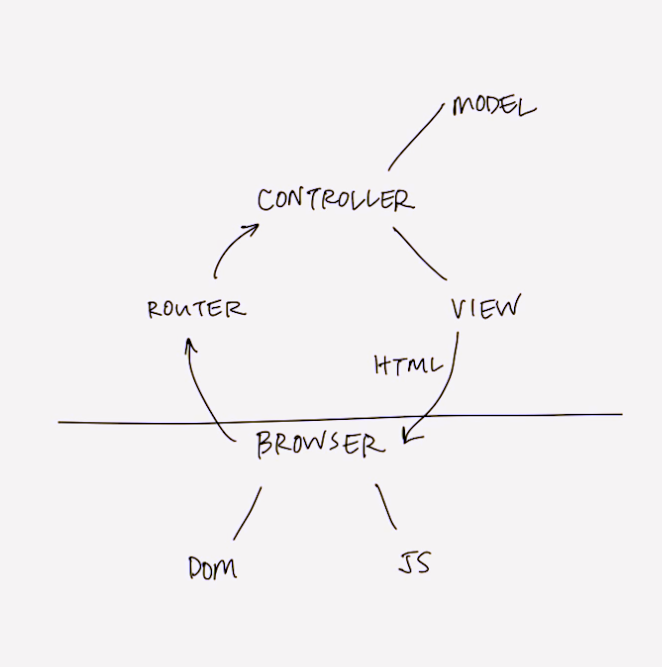 MODEL
CONTROLLER
ROUTER
VIEW
HTML
BROWSER
DOM
JS